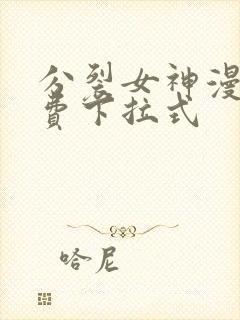 分裂女神漫
费卡拉式
哈尼